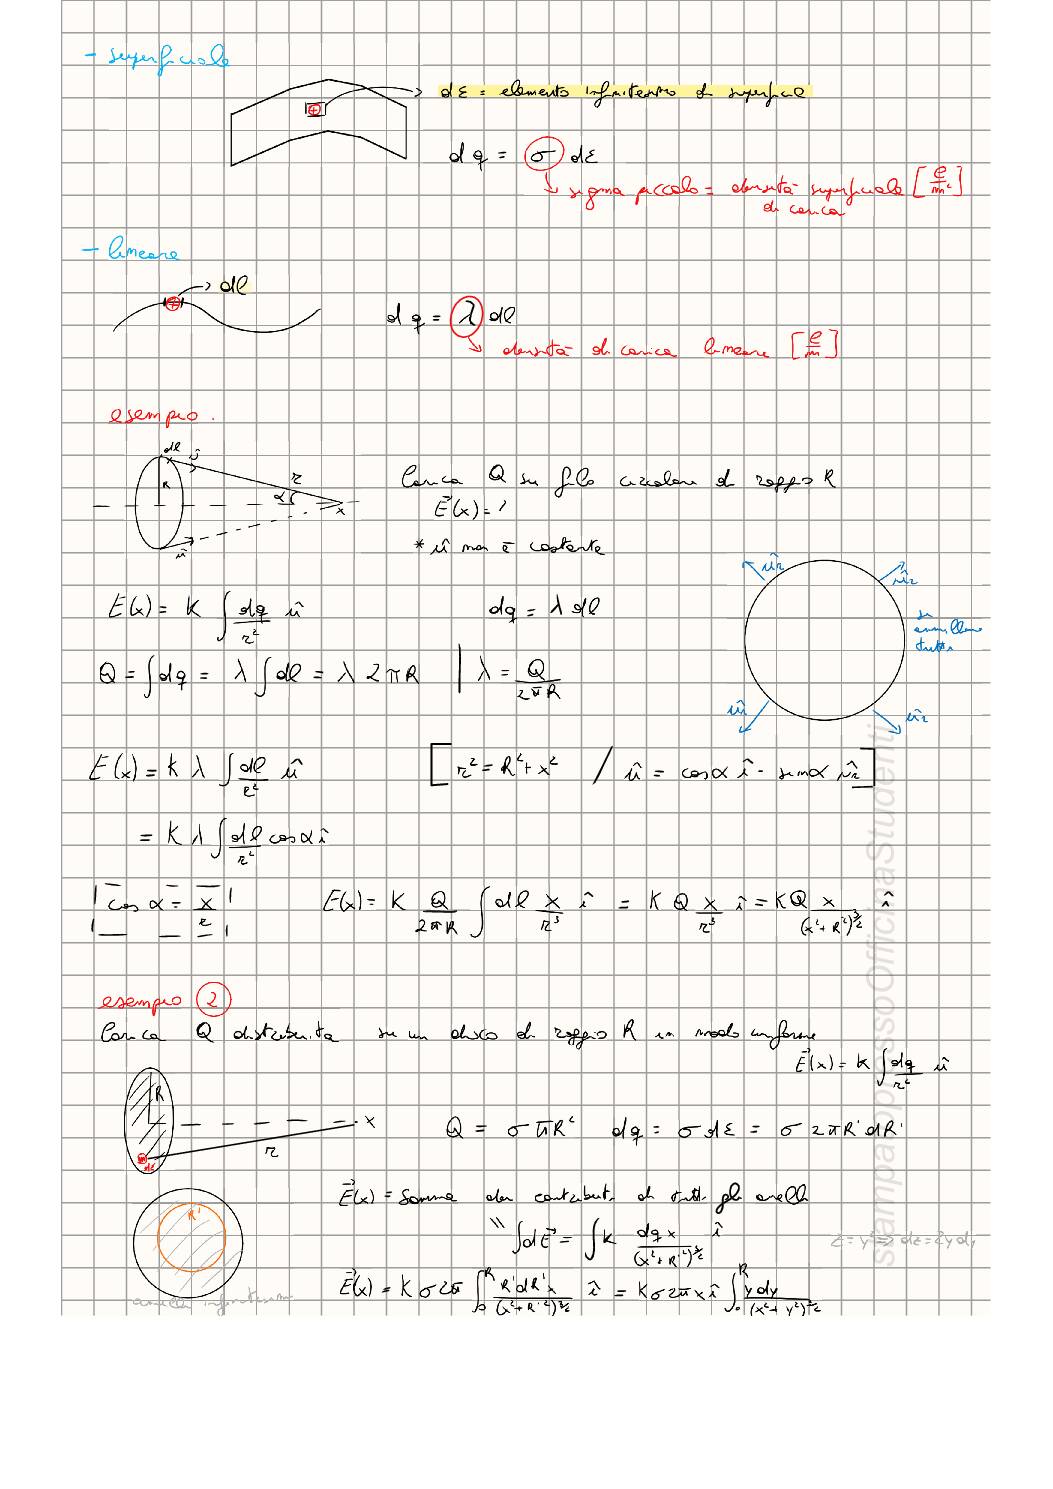 - superficiale
dΣ = elemento infinitesimo di superficie
dq = σ dΣ
sigma piccolo = densità superficiale [C/m²]
di carica
- lineare
dl
dq = λ dl
densità di carica lineare [C/m]
esempio.
dl û
R r α x
û
Carica Q su filo circolare di raggio R
E⃗(x) = ?
* û non è costante
E⃗(x) = K ∫ dq/r² û dq = λ dl
û₂ û₂
si
annullano
tutti
Q = ∫dq = λ ∫dl = λ 2πR | λ = Q/2πR
û₂ û₂
E⃗(x) = K λ ∫ dl/r² û [r² = R² + x² / û = cosα î - senα û₂]
= K λ ∫ dl/r² cosα î
cos α = x/r E(x) = K Q/2πR ∫ dl x/r³ î = K Q x/r³ î = KQ x/(x²+R²)^3/2 î
esempio 2
Carica Q distribuita su un disco di raggio R in modo uniforme
E⃗(x) = K ∫ dq/r² û
R x
r
dΣ
Q = σπR² dq = σ dΣ = σ 2πR'dR'
R'
E⃗(x) = Somma dei contributi di tutti gli anelli
" ∫dE⃗ = ∫K dq x/(x²+R'²)^3/2 î
z = y² => dz = 2y dy
E⃗(x) = K σ 2π ∫₀ᴿ R'dR'x/(x²+R'²)^3/2 î = K σ 2π x î ∫₀ᴿ y dy/(x²+y²)^3/2
anelli infinitesimi
stampato presso Officina Studenti